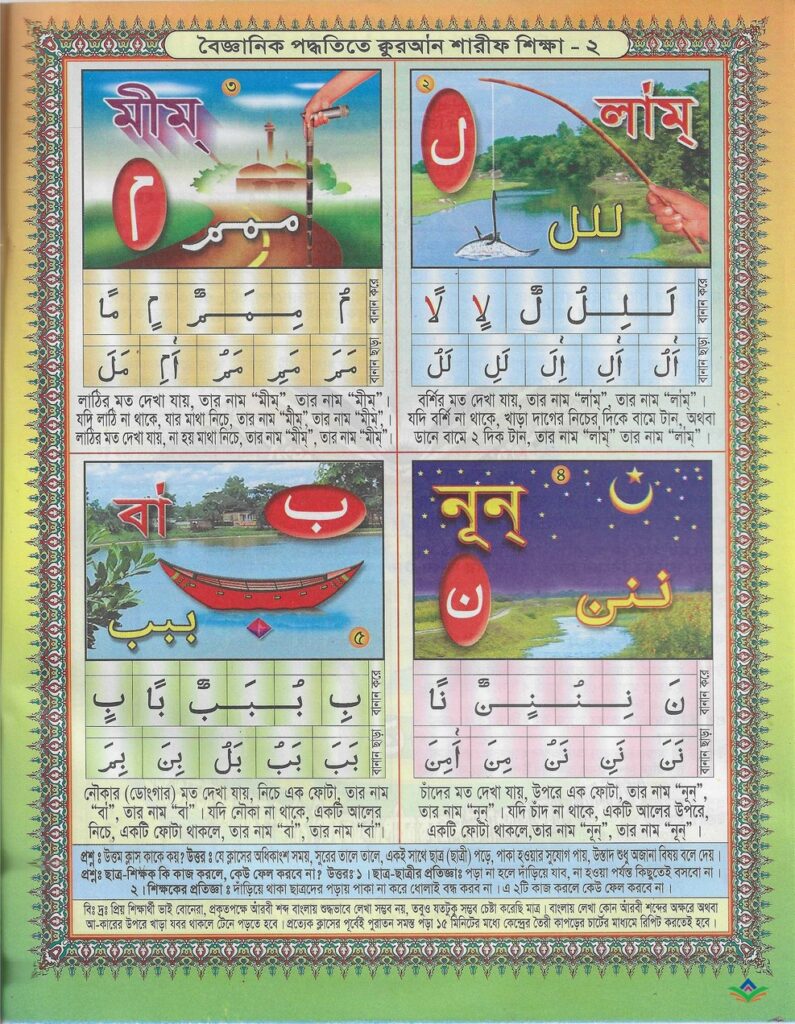 বৈজ্ঞানিক পদ্ধতিতে ক্বুরআ'ন শারীফ শিক্ষা - ২
২
লা'ম্
ل
للل
لَـلِـلُ لٌّ لٍ لًا
বানান করে
لَلُ لَلِ اٰلِ اٰلَ اٰلُ
বানান ছাড়া
বর্শির মত দেখা যায়, তার নাম “লা'ম্”, তার নাম “লা'ম্”।
যদি বর্শি না থাকে, খাড়া দাগের নিচের দিকে বামে টান, অথবা
ডানে বামে ২ দিক টান, তার নাম “লা'ম্” তার নাম “লা'ম্”।
৩
মীম্
م
ممم
مُ مِـمَـمٌّ مٍ مًا
বানান করে
مَمَ مَمِ مَمُ اٰمِ مَلَ
বানান ছাড়া
লাঠির মত দেখা যায়, তার নাম “মীম্”, তার নাম “মীম্”।
যদি লাঠি না থাকে, যার মাথা নিচে, তার নাম “মীম্”, তার নাম “মীম্”,
লাঠির মত দেখা যায়, না হয় মাথা নিচে, তার নাম “মীম্”, তার নাম “মীম্”।
৪
নূন্
ن
ننن
نَ نِـنُـنٍـنٌّ نًا
বানান করে
نَنَ نَنِ نَنُ مِنَ اٰمِنَ
বানান ছাড়া
চাঁদের মত দেখা যায়, উপরে এক ফোটা, তার নাম “নূন্”,
তার নাম “নূন্”। যদি চাঁদ না থাকে, একটি আলের উপরে,
একটি ফোটা থাকলে,তার নাম “নূন্”, তার নাম “নূন্”।
৫
বা'
ب
ببب
ب
بِ بُـبَـبٌّ بًا بٍ
বানান করে
بَبَ بَبُ بَلُ بِنَ بِمَ
বানান ছাড়া
নৌকার (ডোংগার) মত দেখা যায়, নিচে এক ফোটা, তার নাম
“বা'”, তার নাম “বা'”। যদি নৌকা না থাকে, একটি আলের
নিচে, একটি ফোটা থাকলে, তার নাম “বা'”, তার নাম “বা'”
প্রশ্ন : উত্তম ক্লাস কাকে কয়? উত্তর : যে ক্লাসের অধিকাংশ সময়, সুরের তালে তালে, একই সাথে ছাত্র (ছাত্রী) পড়ে, পাকা হওয়ার সুযোগ পায়, উস্তাদ শুধু অজানা বিষয় বলে দেয়।
প্রশ্নঃ ছাত্র-শিক্ষক কি কাজ করলে, কেউ ফেল করবে না? উত্তরঃ ১। ছাত্র-ছাত্রীর প্রতিজ্ঞাঃ পড়া না হলে দাঁড়িয়ে যাব, না হওয়া পর্যন্ত কিছুতেই বসবো না।
২। শিক্ষকের প্রতিজ্ঞা : দাঁড়িয়ে থাকা ছাত্রদের পড়ায় পাকা না করে ধোলাই বন্ধ করব না। এ ২টি কাজ করলে কেউ ফেল করবে না।
বিঃ দ্রঃ প্রিয় শিক্ষার্থী ভাই বোনেরা, প্রকতপক্ষে আঁরবী শব্দ বাংলায় শুদ্ধভাবে লেখা সম্ভব নয়, তবুও যতটুকু সম্ভব চেষ্টা করেছি মাত্র। বাংলায় লেখা কোন আঁরবী শব্দের অক্ষরে অথবা
আ-কারের উপরে খাড়া যবর থাকলে টেনে পড়তে হবে। প্রত্যেক ক্লাসের পূর্বেই পুরাতন সমস্ত পড়া ১৫ মিনিটের মধ্যে কেন্দ্রের তৈরী কাপড়ের চার্টের মাধ্যমে রিপিট করতেই হবে।